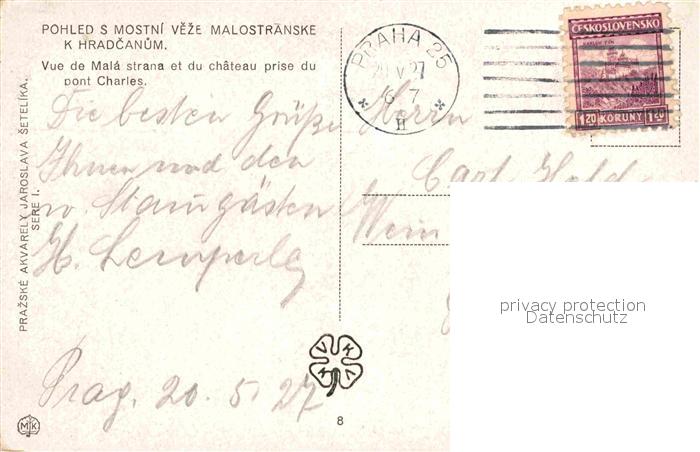 POHLED S MOSTNÍ VĚŽE MALOSTRANSKE
K HRADČANŮM.
Vue de Malá strana et du château prise du
pont Charles.
PRAŽSKÉ AKVARELY JAROSLAVA ŠETELÍKA.
SERE I.
Die besten Grüße
Ihnen und den
w. Stamgästen
H. Lemperle
Prag. 20. 5. 27
MK
PRAHA 25
20 V 27
6 7
H
ČESKOSLOVENSKO
KARLŮV TÝN
1.20 KORUNY 1.20
Herrn
Carl
Wein
privacy protection
Datenschutz
VKKV
8